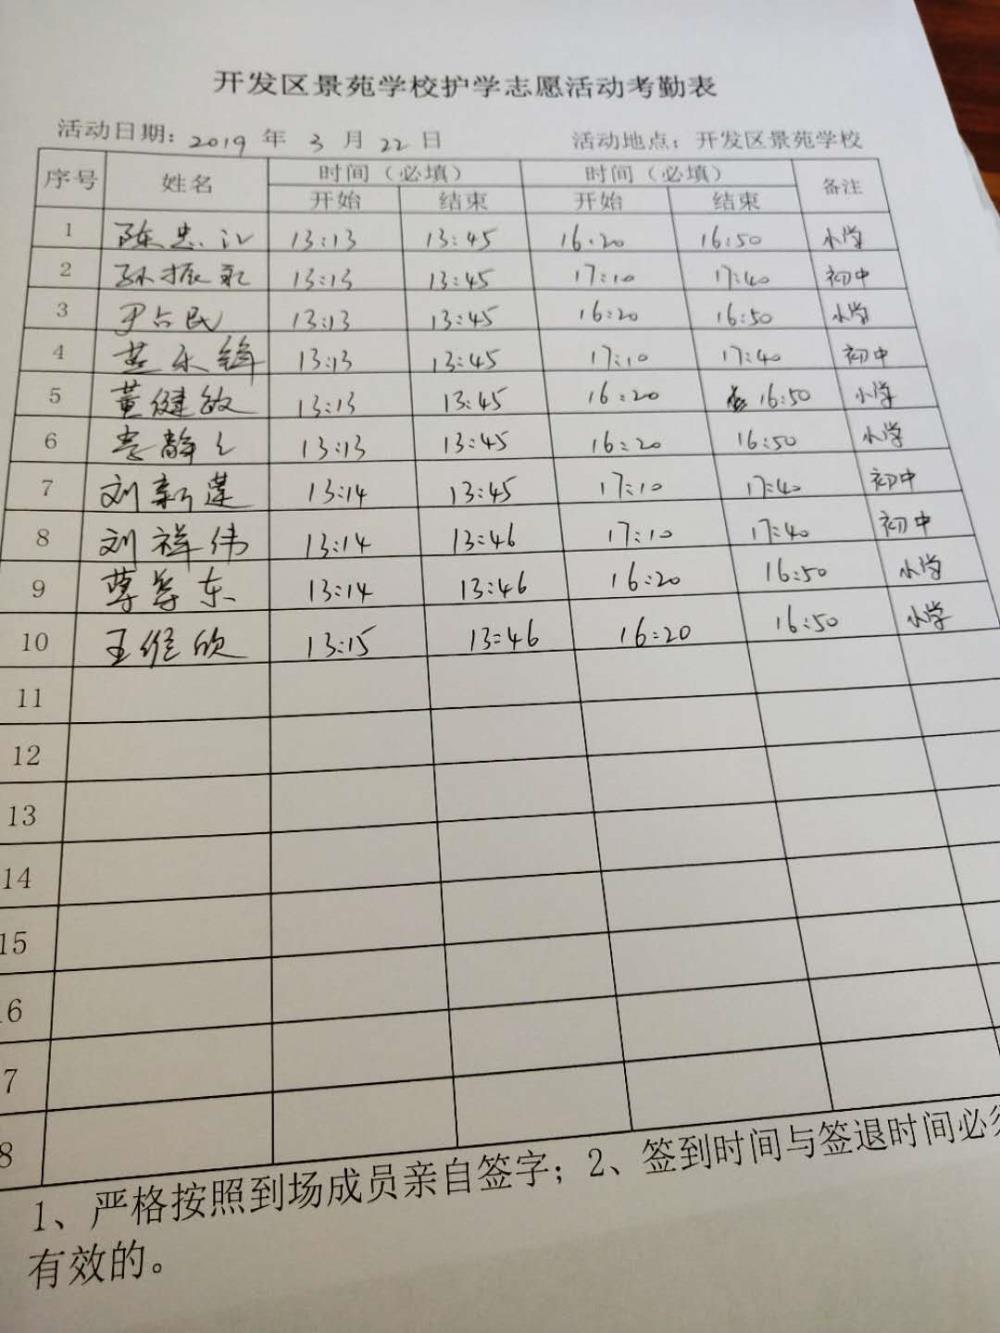 开发区景苑学校护学志愿活动考勤表
活动日期: 2019 年 3 月 22 日 活动地点: 开发区景苑学校
序号 姓名 时间（必填） 时间（必填） 备注
开始 结束 开始 结束
1 陈忠江 13:13 13:45 16:20 16:50 小学
2 孙振永 13:13 13:45 17:10 17:40 初中
3 尹占民 13:13 13:45 16:20 16:50 小学
4 13:13 13:45 17:10 17:40 初中
5 董健敏 13:13 13:45 16:20 16:50 小学
6 13:13 13:45 16:20 16:50 小学
7 刘新莲 13:14 13:45 17:10 17:40 初中
8 刘祥伟 13:14 13:46 17:10 17:40 初中
9 13:14 13:46 16:20 16:50 小学
10 13:15 13:46 16:20 16:50 小学
11
12
13
14
15
6
7
8
1、严格按照到场成员亲自签字；2、签到时间与签退时间必
有效的。